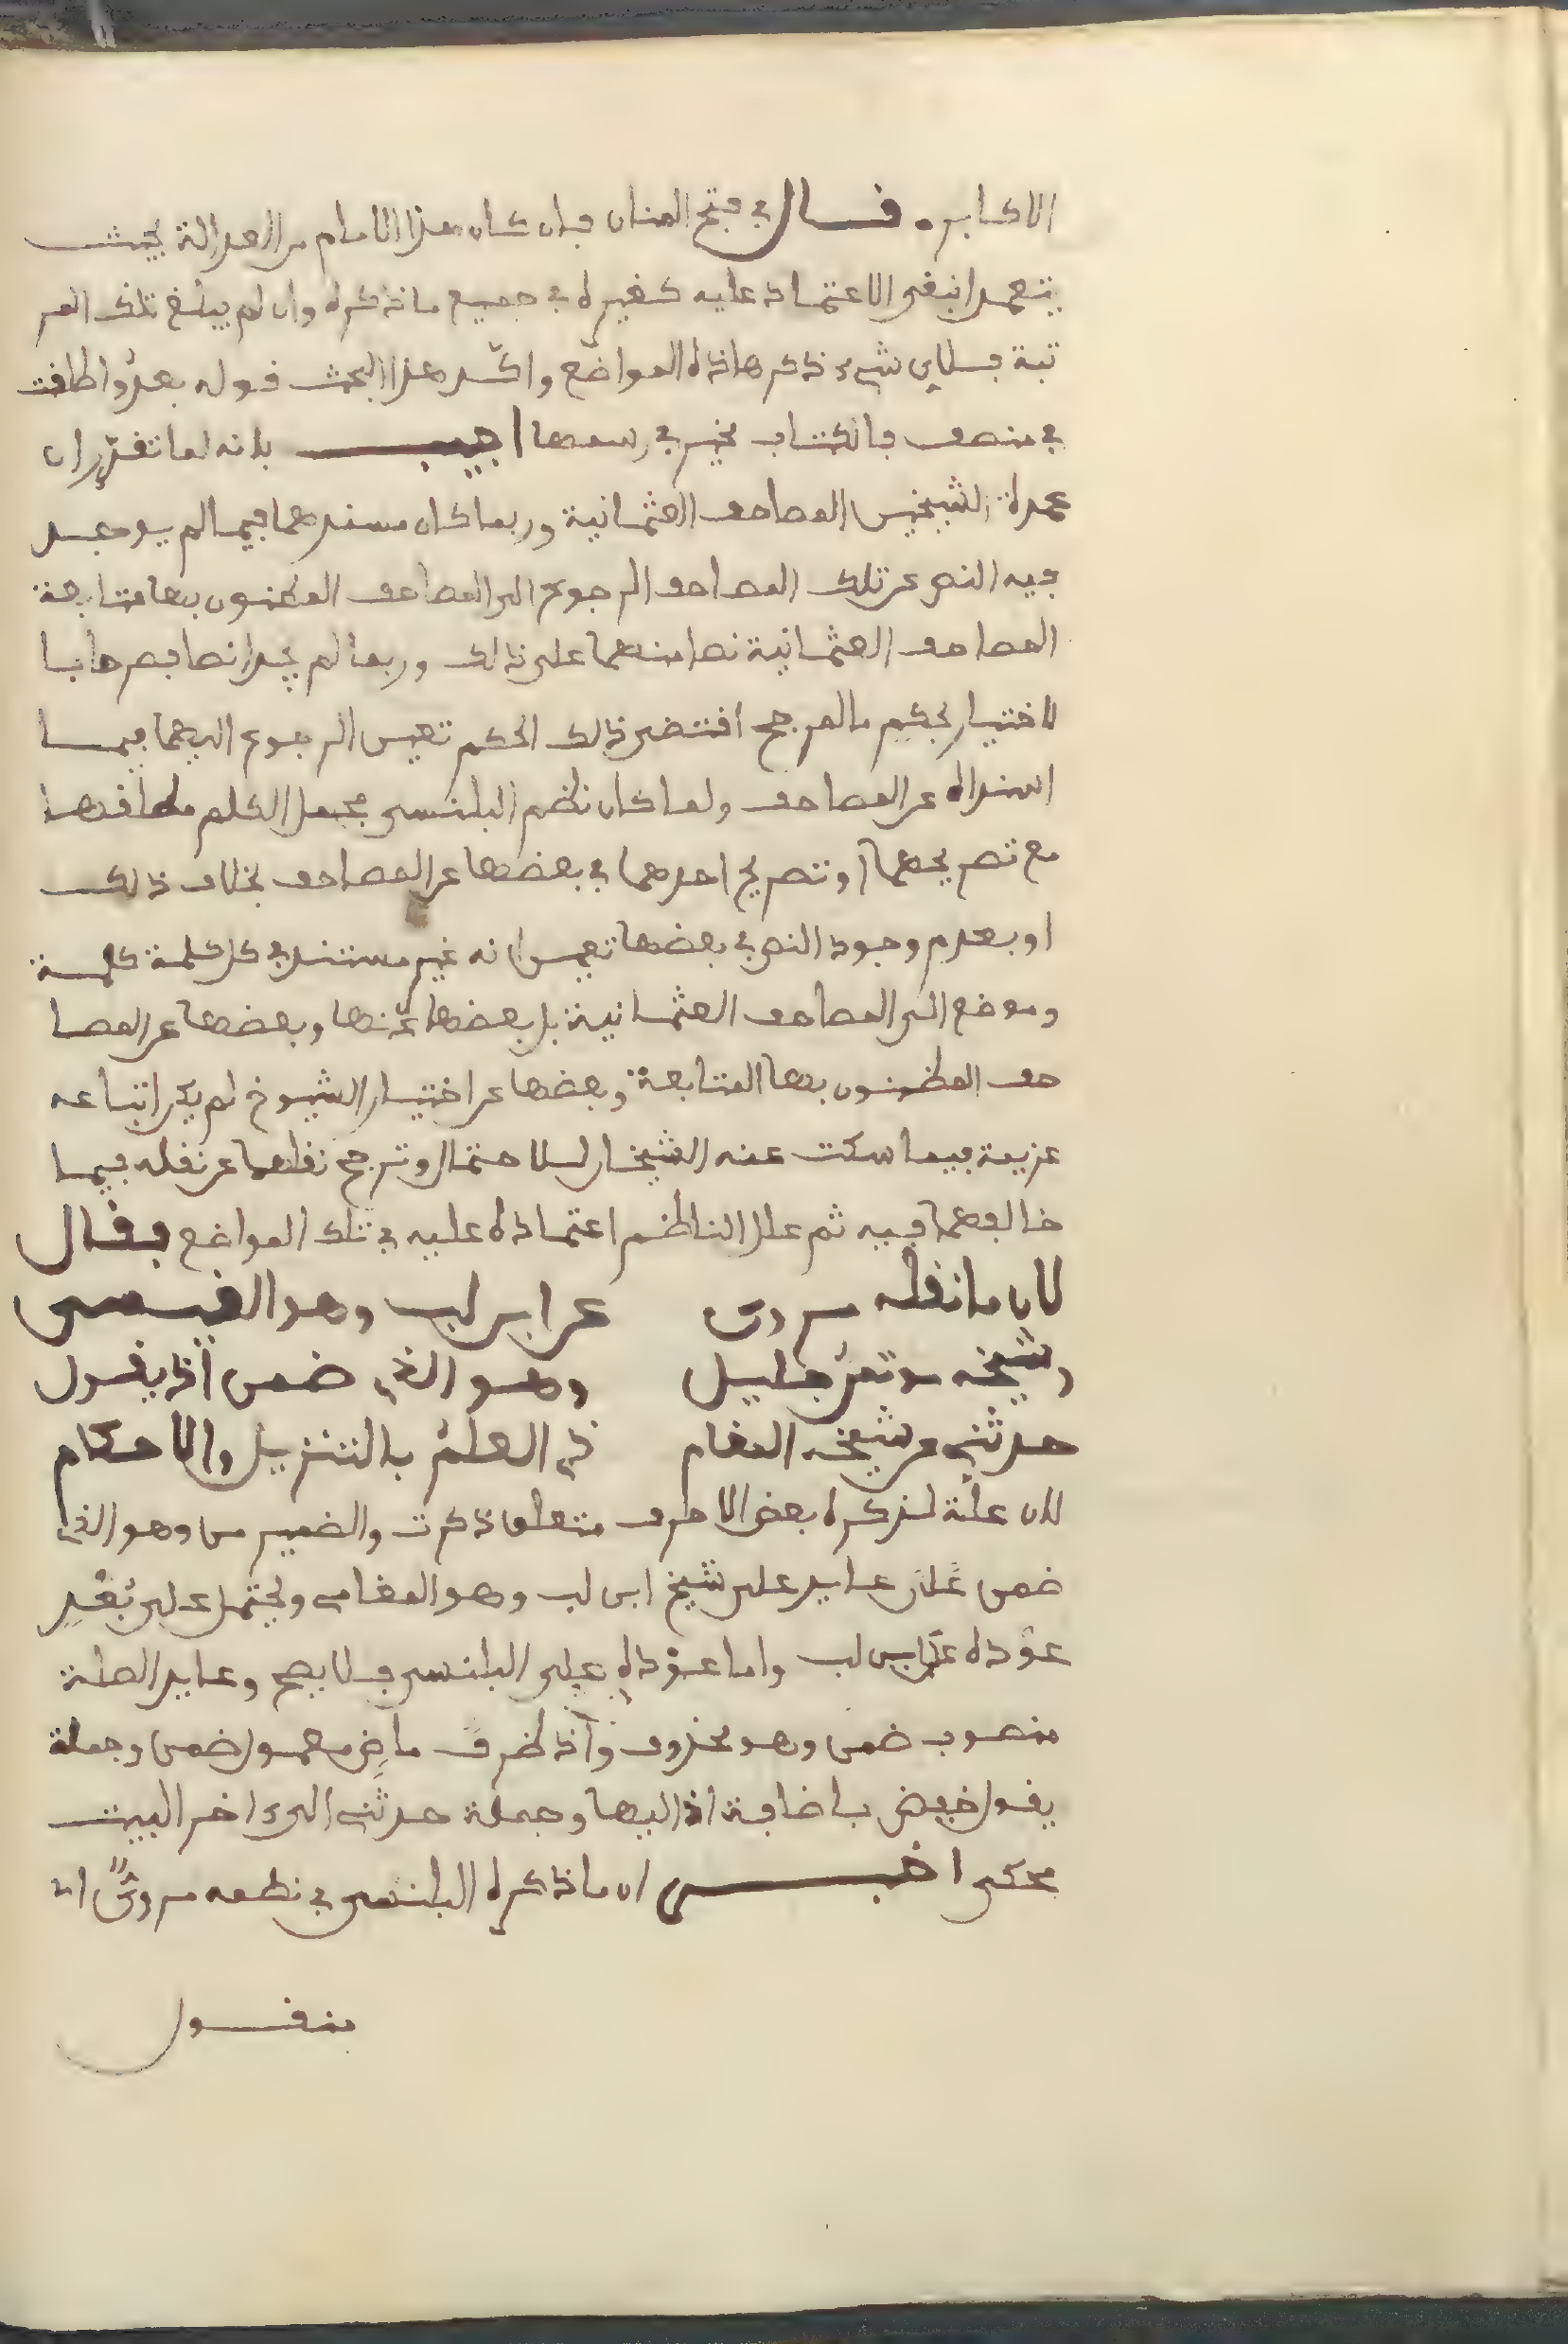 الاكابر • قال في فتح المنان فان كان هذا الامام من العدالة بحيث
يتعمد انبغى الاعتماد عليه كغيره في جميع ما ذكره وان لم يبلغ تلك المر
تبة فلاي شيء ذكر هاذه المواضع واكد هذا البحث قوله بعد واطلقت
في منصف فالكتاب مخير في رسمها اجيب بانه لما تقرر ان
عمدة الشيخين المصاحف العثمانية وربما كان مستندهما فيما لم يوجد
فيه النص عن تلك المصاحف الرجوع الى المصاحف المظنون بها متابعة
المصاحف العثمانية نصا منهما على ذالك وربما لم يجدا نصا فصرحا با
لاختيار لحكم ما لمرجح اقتضى ذالك الحكم تعين الرجوع اليهما فيما
اسنداه عن المصاحف ولما كان نظم البلنسي مجمل الكلم مطلقها
مع تصريحهما او تصريح احدهما في بعضها عن المصاحف بخلاف ذالك
او بعدم وجود النص في بعضها تعين انه غير مستند في كل كلمة كلمة
وموضع الى المصاحف العثمانية بل بعضها عنها وبعضها عن المصا
حف المظنون بها المتابعة وبعضها عن اختيار الشيوخ لم يكن اتباعه
عزيمة فيما سكت عنه الشيخان للاحتمال وترجح نقلهما عن نقله فيما
خالفهما فيه ثم علل الناظم اعتماده عليه في تلك المواضع فقال
لان ما نقله مروى عن ابن لب وهو القيسى
وشيخه موتمن جليل وهو الذي ضمن اذ يقول
حدثني عن شيخه المغام ذي العلم بالتنزيل والاحكام
لان علة لذكره بعض الاحرف متعلق ذكرت والضمير من وهو الذي
ضمن عايد على شيخ ابن لب وهو المغامي ويحتمل على بُعْدٍ
عوْده على ابن لب واما عوْده على البلنسي فلا يصح وعايد الصلة
منصوب ضمن وهو محذوف واذ ظرف ماض معمول ضمن وجملة
يقول خفض باضافة اذ اليها وجملة حدثني الى ءاخر البيت
محكى اخبر ان ما ذكره البلنسي في نظمه مروىٌّ اى
منقول